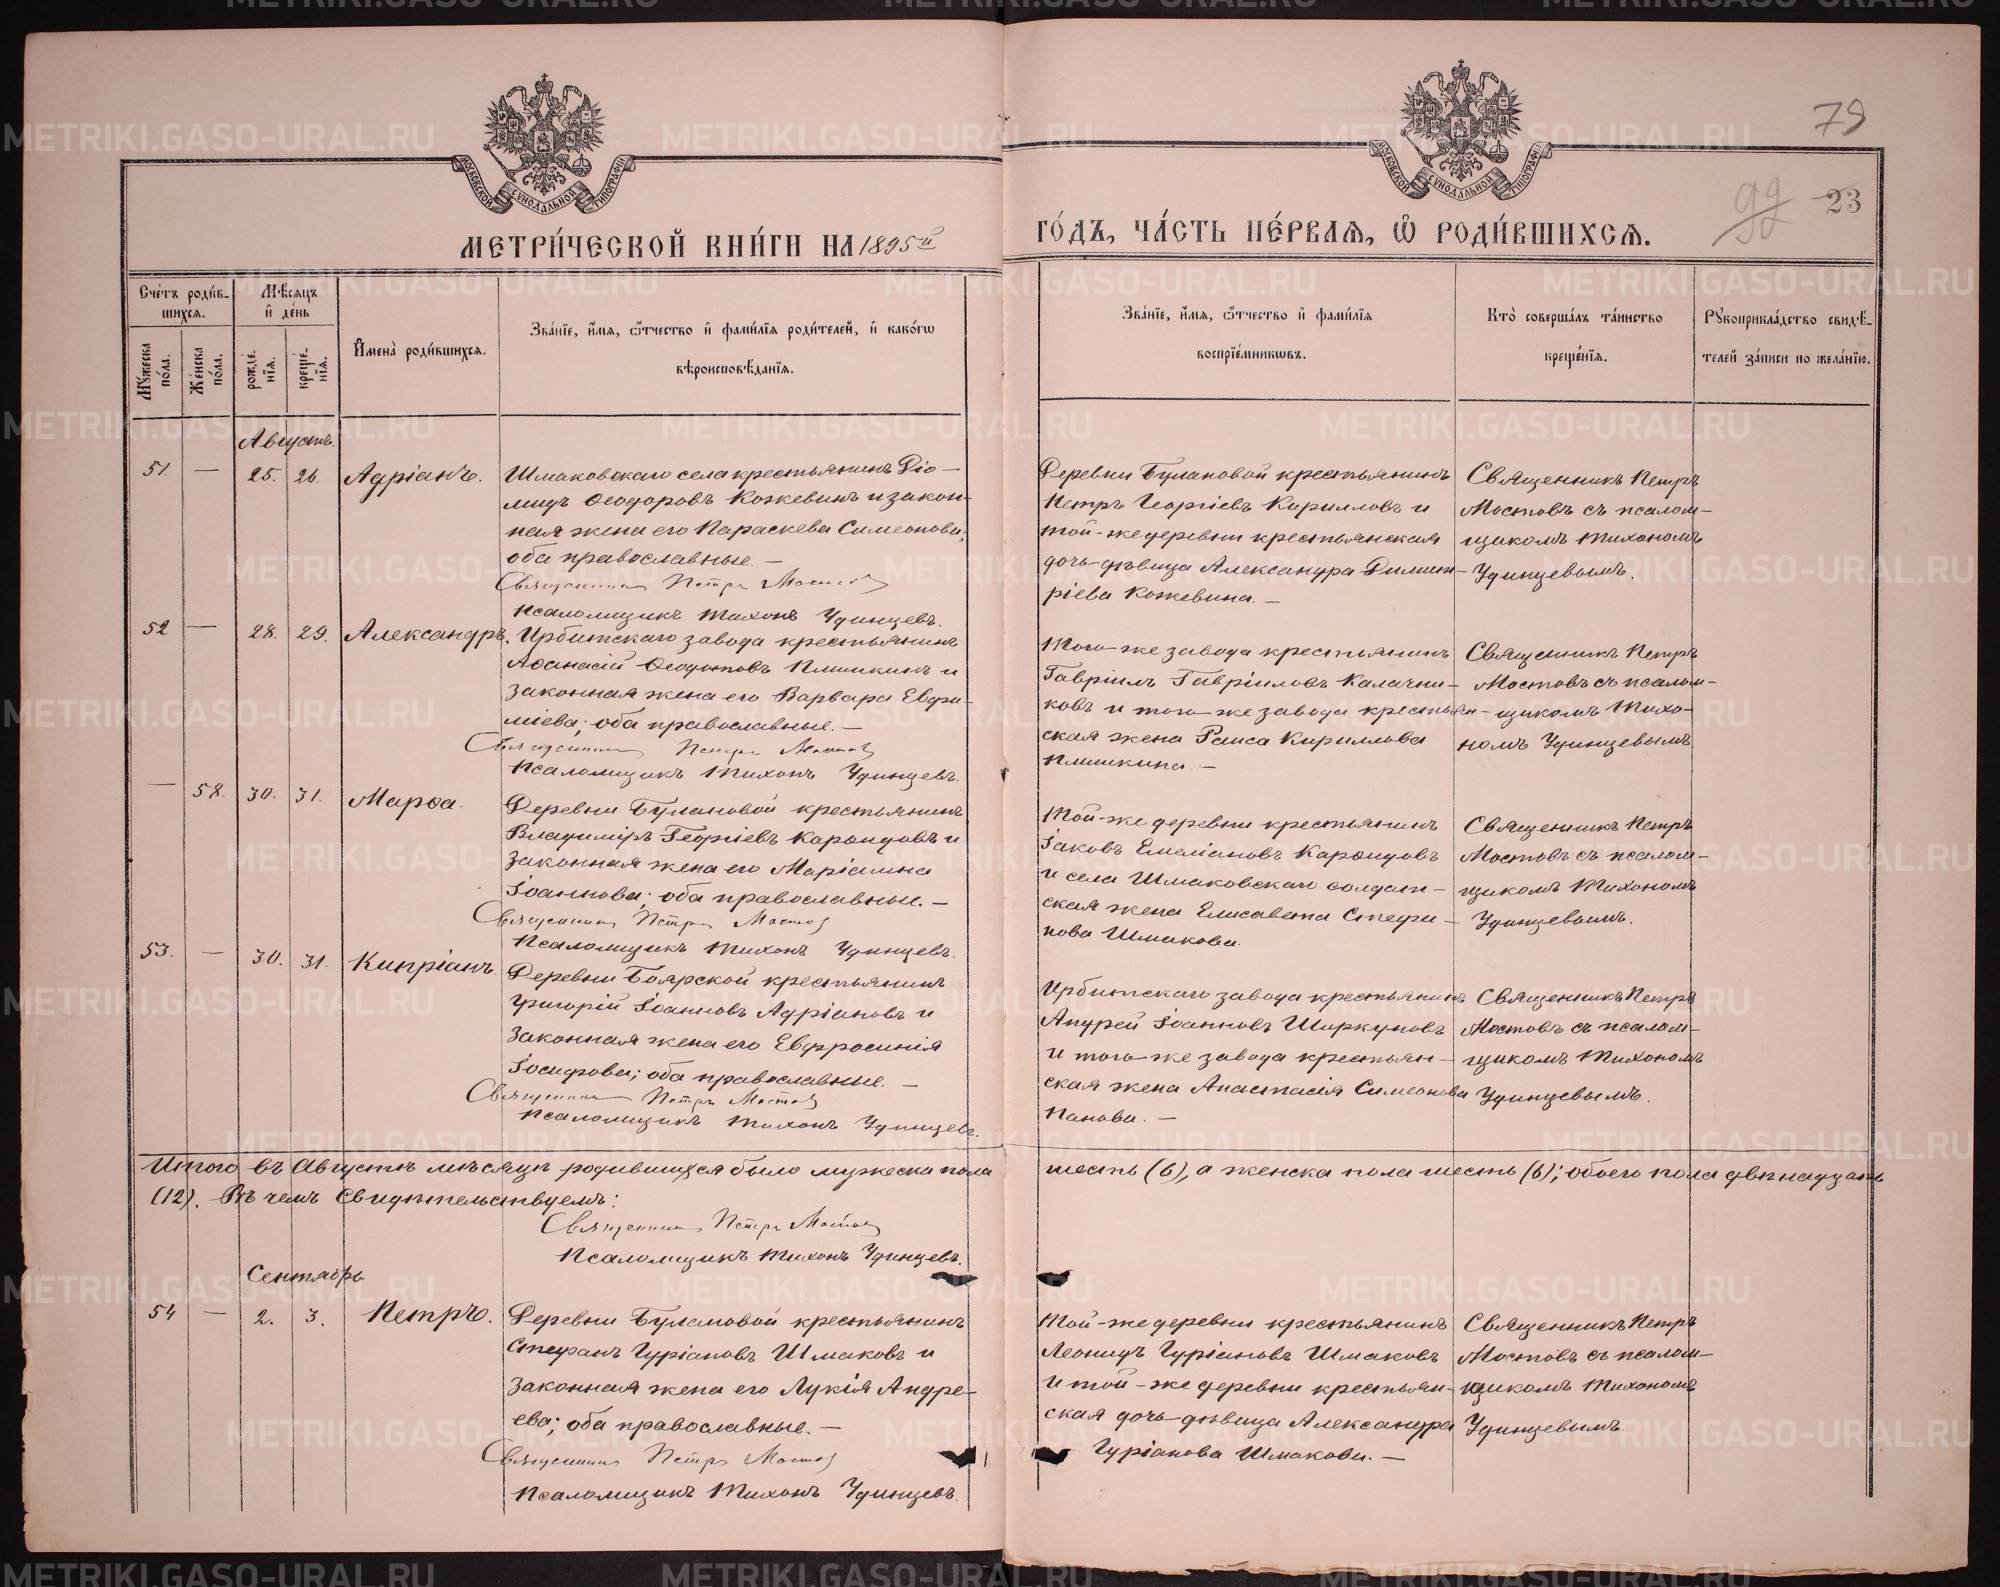 79
99
23
МОСКОВСКОЙ СУНОДАЛЬНОЙ ТИПОГРАФІИ
МОСКОВСКОЙ СУНОДАЛЬНОЙ ТИПОГРАФІИ
МЕТРИ́ЧЕСКОЙ КНИ́ГИ НА 1895й
ГО́ДЪ, ЧА́СТЬ ПЕ́РВАЯ, Ѿ РОДИ́ВШИХСЯ.
Сче́тъ роди́вшихся.
Мꙋжеска по́ла.
Же́нска по́ла.
Мѣ́сяцъ и҆ де́нь
рожде́нїя.
креще́нїя.
И҆мена̀ роди́вшихся.
Зва́нїе, и҆́мя, ѻ҆́тчество и҆ фами́лїя роди́телей, и҆ како́гѡ
вѣроисповѣ́данїя.
Зва́нїе, и҆́мя, ѻ҆́тчество и҆ фами́лїя
воспрїе́мникѡвъ.
Кто̀ соверша́лъ та́инство
креще́нїя.
Рꙋкоприкла́дство свидѣ́-
телей за́писи по жела́нїю.
Августъ.
51. — 25. 26. Адріанъ.
Шмаковскаго села крестьянинъ Діо-
мидъ Ѳеодоровъ Кожевинъ и закон-
ная жена его Параскева Симеонова;
оба православные. —
Священникъ Петръ Мостов
Псаломщикъ Тихонъ Удинцевъ.
Деревни Булановой крестьянинъ
Петръ Георгіевъ Кирилловъ и
той-же деревни крестьянская
дочь-дѣвица Александра Димит-
ріева Кожевина. —
Священникъ Петръ
Мостовъ съ псалом-
щикомъ Тихономъ
Удинцевымъ.
52 — 28. 29. Александръ.
Ирбитскаго завода крестьянинъ
Аѳанасій Ѳеодотовъ Пшикинъ и
законная жена его Варвара Евфи-
міева; оба православные. —
Священникъ Петръ Мостов
Псаломщикъ Тихонъ Удинцевъ.
Того-же завода крестьянинъ
Гавріилъ Гавріиловъ Калачни-
ковъ и того-же завода крестьян-
ская жена Раиса Кириллова
Священникъ Петръ
Мостовъ съ псалом-
щикомъ Тихо-
номъ Удинцевымъ.
— 58. 30. 31. Марѳа.
Деревни Булановой крестьянинъ
Владиміръ Георгіевъ и
законная жена его Маріамна
Іоаннова; оба православные. —
Священникъ Петръ Мостов
Псаломщикъ Тихонъ Удинцевъ.
Той-же деревни крестьянинъ
Іаковъ Емеліановъ
и села Шмаковскаго солдат-
ская жена Елисавета Стефа-
нова Шмакова.
Священникъ Петръ
Мостовъ съ псалом-
щикомъ Тихономъ
Удинцевымъ.
53. — 30. 31. Кипріанъ.
Деревни Боярской крестьянинъ
Григорій Іоанновъ Адріановъ и
законная жена его Евфросинія
Іосифова; оба православные. —
Священникъ Петръ Мостов
Псаломщикъ Тихонъ Удинцевъ.
Ирбитскаго завода крестьянинъ
Андрей Іоанновъ Ширкуновъ
и того-же завода крестьян-
ская жена Анастасія Симеонова
Панова. —
Священникъ Петръ
Мостовъ съ псалом-
щикомъ Тихономъ
Удинцевымъ.
Итого въ Августѣ мѣсяцѣ родившихся было мужеска пола шесть (6), а женска пола шесть (6); обоего пола двѣнадцать
(12). Въ чемъ свидѣтельствуемъ:
Священникъ Петръ Мостов
Псаломщикъ Тихонъ Удинцевъ.
Сентябрь
54 — 2. 3. Петръ.
Деревни Булановой крестьянинъ
Стефанъ Гуріановъ Шмаковъ и
законная жена его Лукія Андре-
ева; оба православные. —
Священникъ Петръ Мостов
Псаломщикъ Тихонъ Удинцевъ.
Той-же деревни крестьянинъ
Леонидъ Гуріановъ Шмаковъ
и той-же деревни крестьян-
ская дочь-дѣвица Александра
Гуріанова Шмакова. —
Священникъ Петръ
Мостовъ съ псалом-
щикомъ Тихономъ
Удинцевымъ.
METRIKI.GASO-URAL.RU